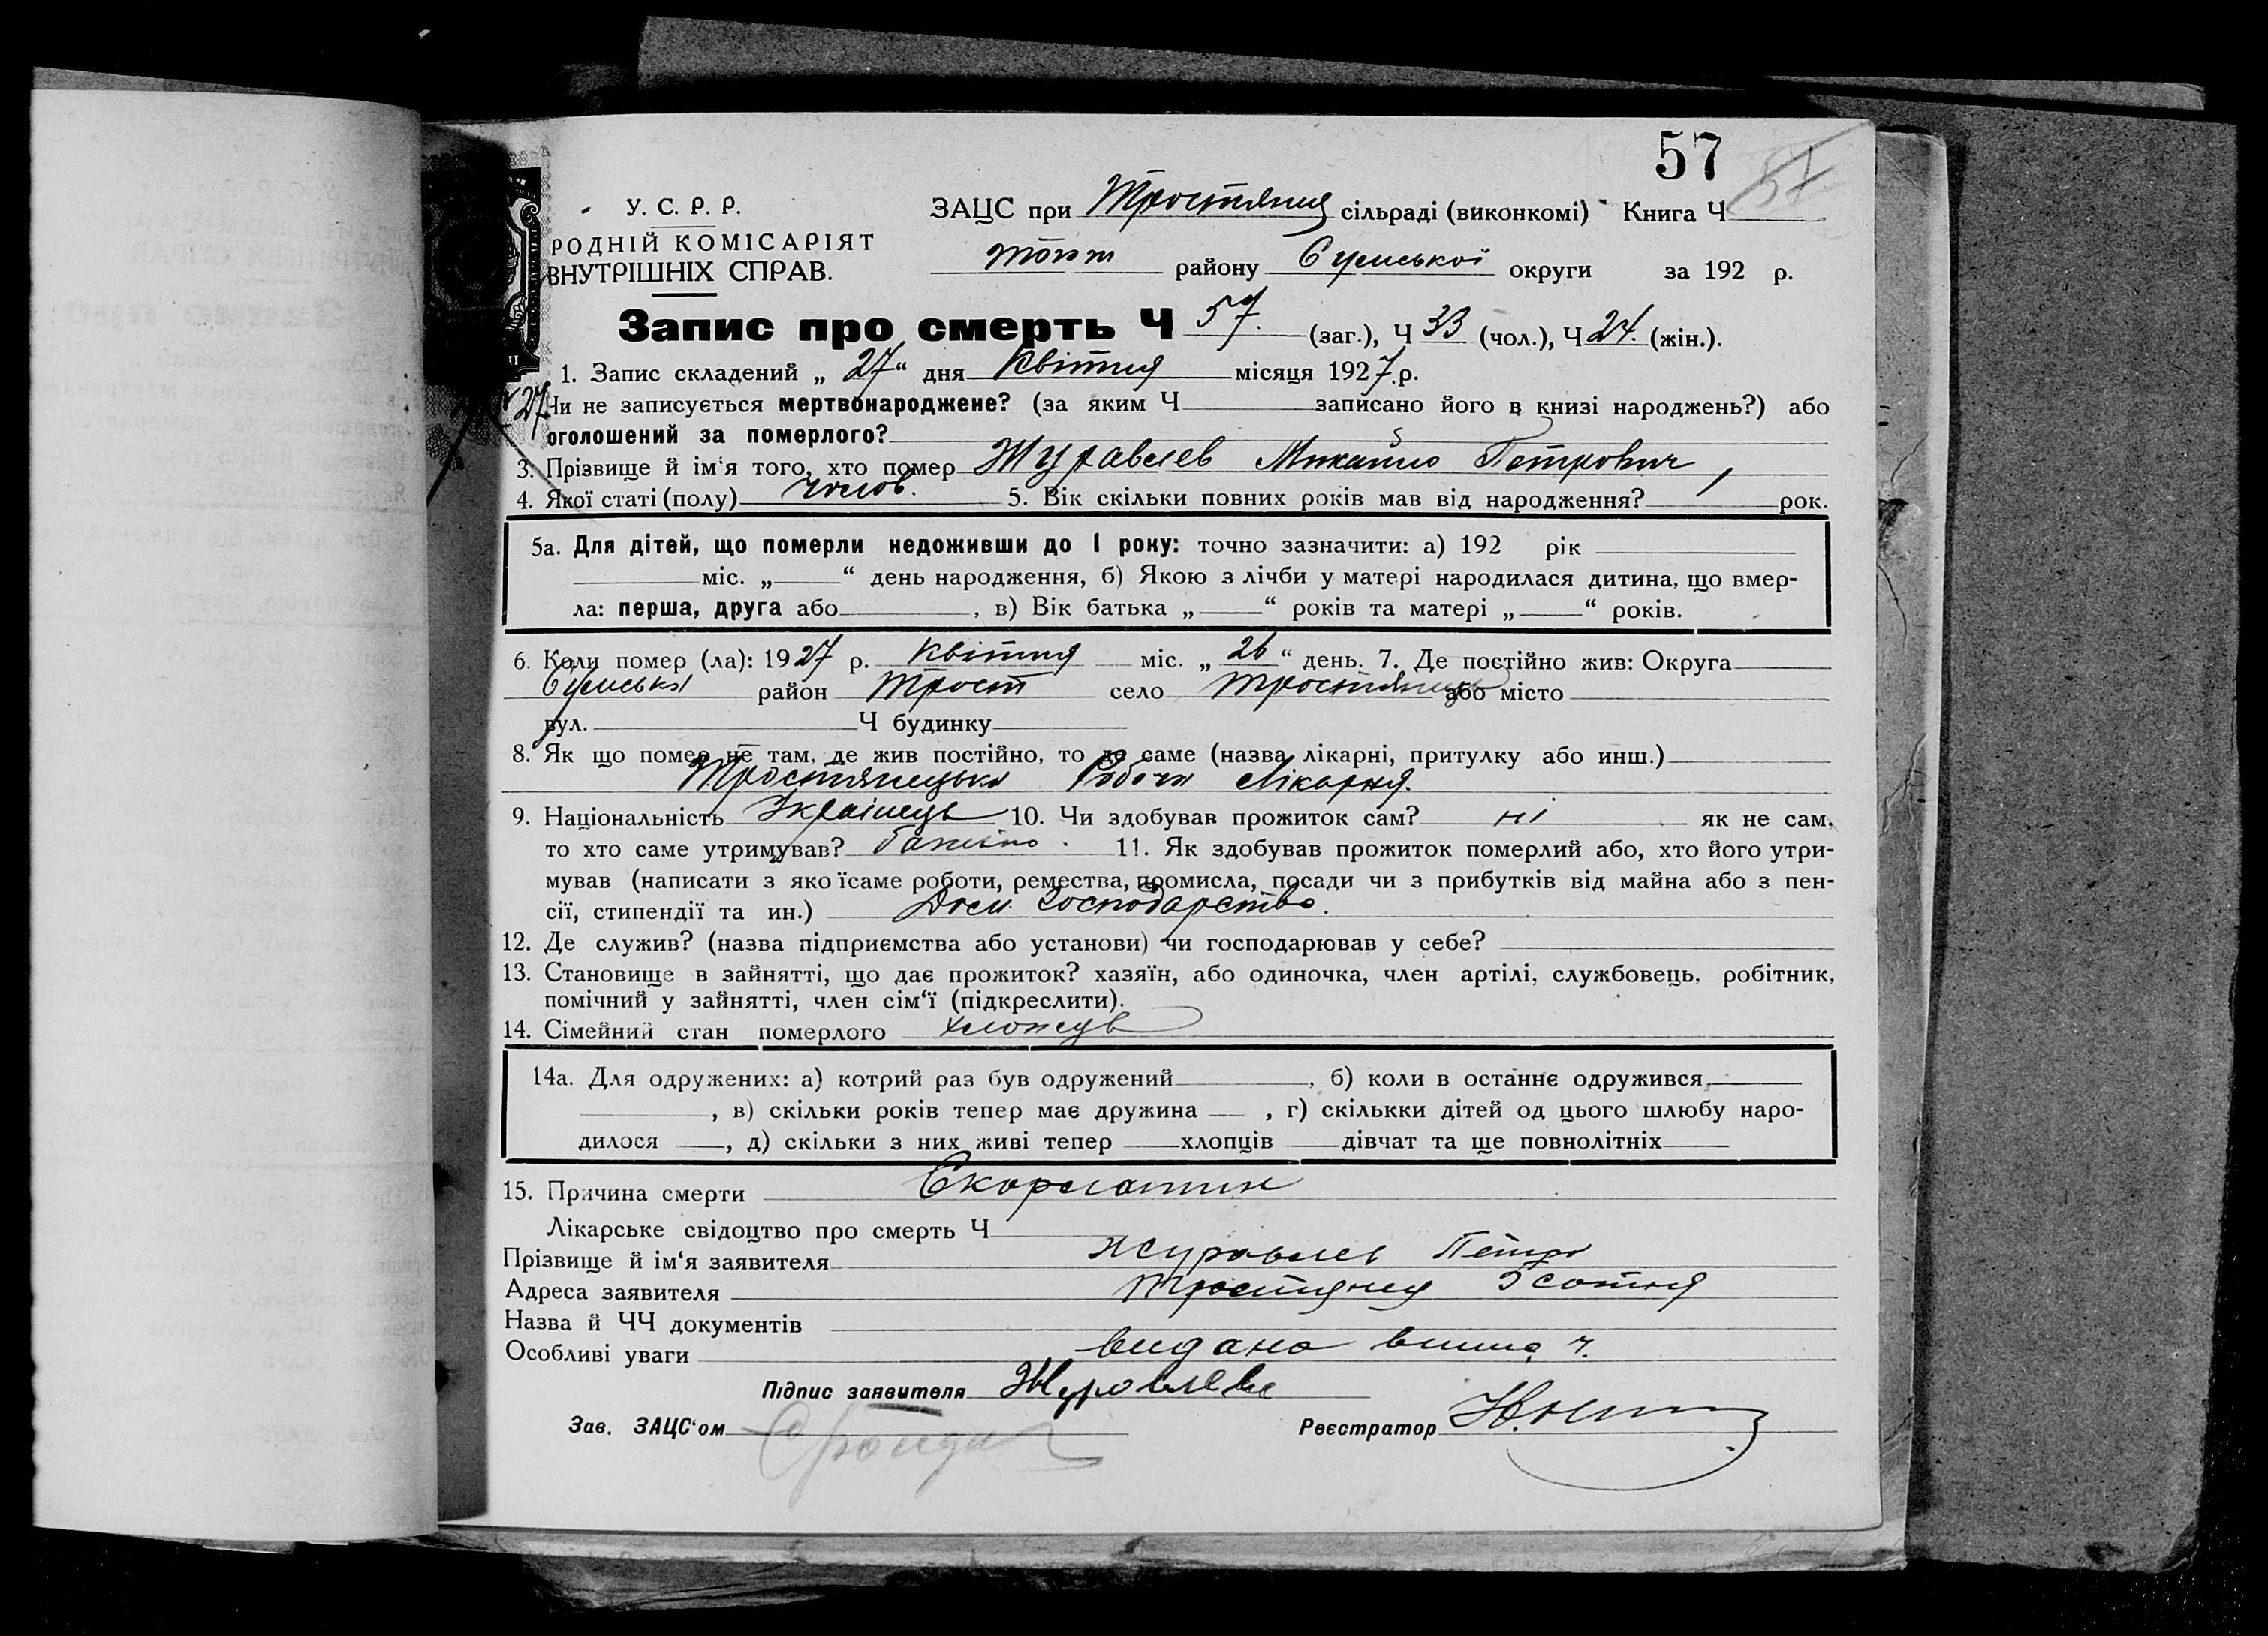 57
У. С. Р. Р.
РОДНІЙ КОМІСАРІЯТ
ВНУТРІШНІХ СПРАВ.
ЗАЦС при Тростянця сільраді (виконкомі) Книга Ч
району Сумської округи за 192 р.
Запис про смерть Ч 57. (заг.), Ч 33 (чол.), Ч 24. (жін.).
1. Запис складений „ 27 “ дня Квітня місяця 1927.р.
27
Чи не записується мертвонароджене? (за яким Ч записано його в книзі народжень?) або
оголошений за померлого?
3. Прізвище й ім‘я того, хто помер Журавлев Михайло Петрович
4. Якої статі (полу) чолов. 5. Вік скільки повних років мав від народження? 5 рок.
5а. Для дітей, що померли недоживши до 1 року: точно зазначити: а) 192 рік
міс. „ “ день народження, б) Якою з лічби у матері народилася дитина, що вмер-
ла: перша, друга або , в) Вік батька „ “ років та матері „ “ років.
6. Коли помер (ла): 1927 р. Квітня міс. „ 26 “ день. 7. Де постійно жив: Округа
Сумська район Трост село Тростянець або місто
вул. Ч будинку
8. Як що помер не там, де жив постійно, то де саме (назва лікарні, притулку або инш.)
Тростянецька Робоча Лікарня.
9. Національність Українець 10. Чи здобував прожиток сам? ні як не сам,
то хто саме утримував? батько. 11. Як здобував прожиток померлий або, хто його утри-
мував (написати з якоїсаме роботи, ремества, промисла, посади чи з прибутків від майна або з пен-
сії, стипендії та ин.) Дом. Господарство.
12. Де служив? (назва підприємства або установи) чи господарював у себе?
13. Становище в зайнятті, що дає прожиток? хазяїн, або одиночка, член артілі, службовець, робітник,
помічний у зайнятті, член сім‘ї (підкреслити).
14. Сімейний стан померлого хлопець
14а. Для одружених: а) котрий раз був одружений , б) коли в останнє одружився
, в) скільки років тепер має дружина , г) скількки дітей од цього шлюбу наро-
дилося , д) скільки з них живі тепер хлопців дівчат та ще повнолітніх
15. Причина смерти Скорлатин
Лікарське свідоцтво про смерть Ч
Прізвище й ім‘я заявителя Журавлев Петро
Адреса заявителя Тростянця 5 сотня
Назва й ЧЧ документів
Особливі уваги видано
Підпис заявителя Журавлева
Зав. ЗАЦС‘ом
Реєстратор